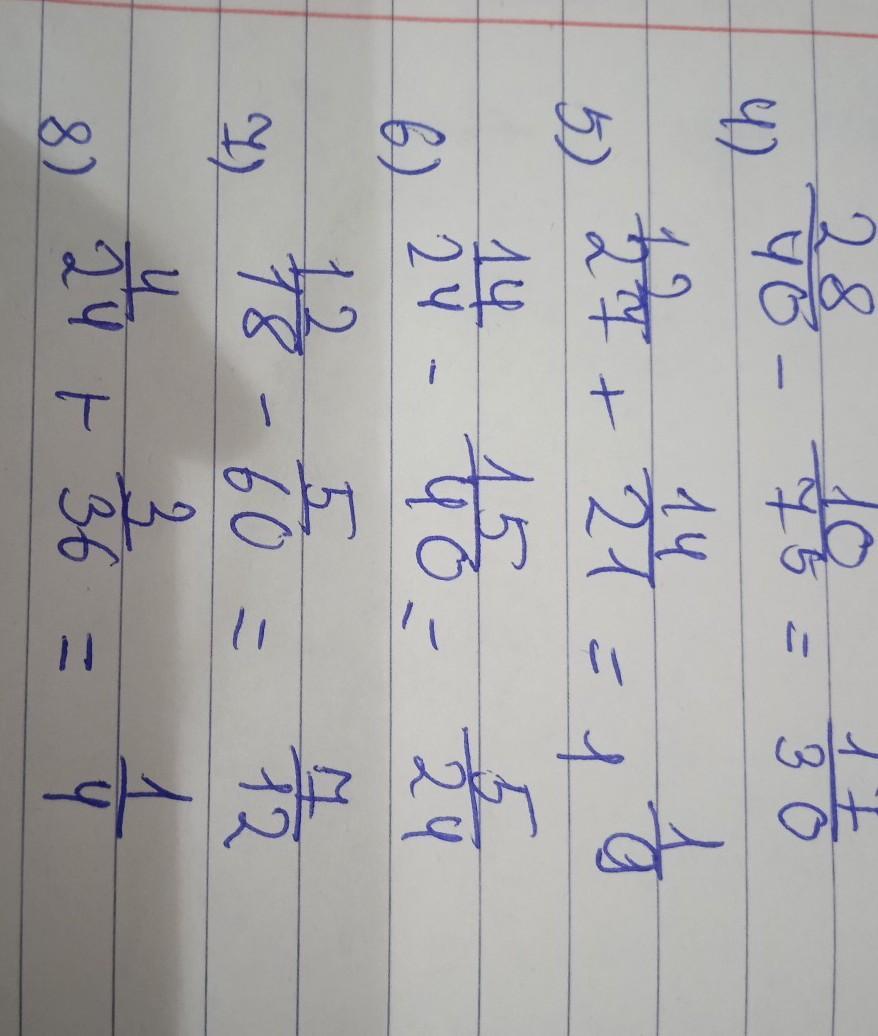 4) 28/40 - 10/75 = 17/30
5) 12/27 + 14/21 = 1 1/9
6) 14/24 - 15/40 = 5/24
7) 12/18 - 5/60 = 7/12
8) 4/24 + 3/36 = 1/4